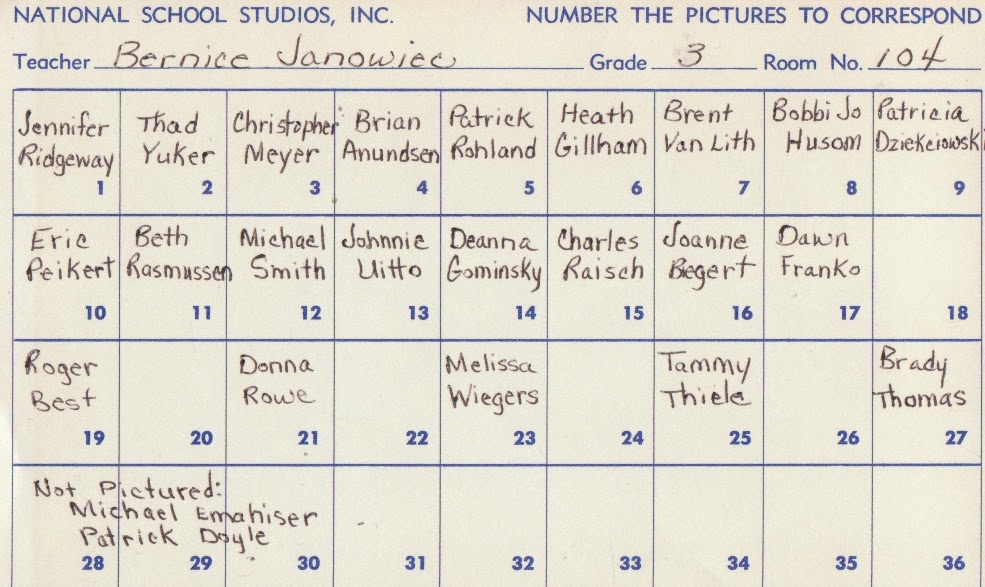 NATIONAL SCHOOL STUDIOS, INC. NUMBER THE PICTURES TO CORRESPOND
Teacher Bernice Janowiec Grade 3 Room No. 104
Jennifer Ridgeway 1
Thad Yuker 2
Christopher Meyer 3
Brian Anundsen 4
Patrick Rohland 5
Heath Gillham 6
Brent Van Lith 7
Bobbi Jo Husom 8
Patricia Dziekciowski 9
Eric Peikert 10
Beth Rasmussen 11
Michael Smith 12
Johnnie Uitto 13
Deanna Gominsky 14
Charles Raisch 15
Joanne Begert 16
Dawn Franko 17
18
Roger Best 19
20
Donna Rowe 21
22
Melissa Wiegers 23
24
Tammy Thiele 25
26
Brady Thomas 27
Not Pictured:
Michael Emahiser
Patrick Doyle
28 29 30 31 32 33 34 35 36